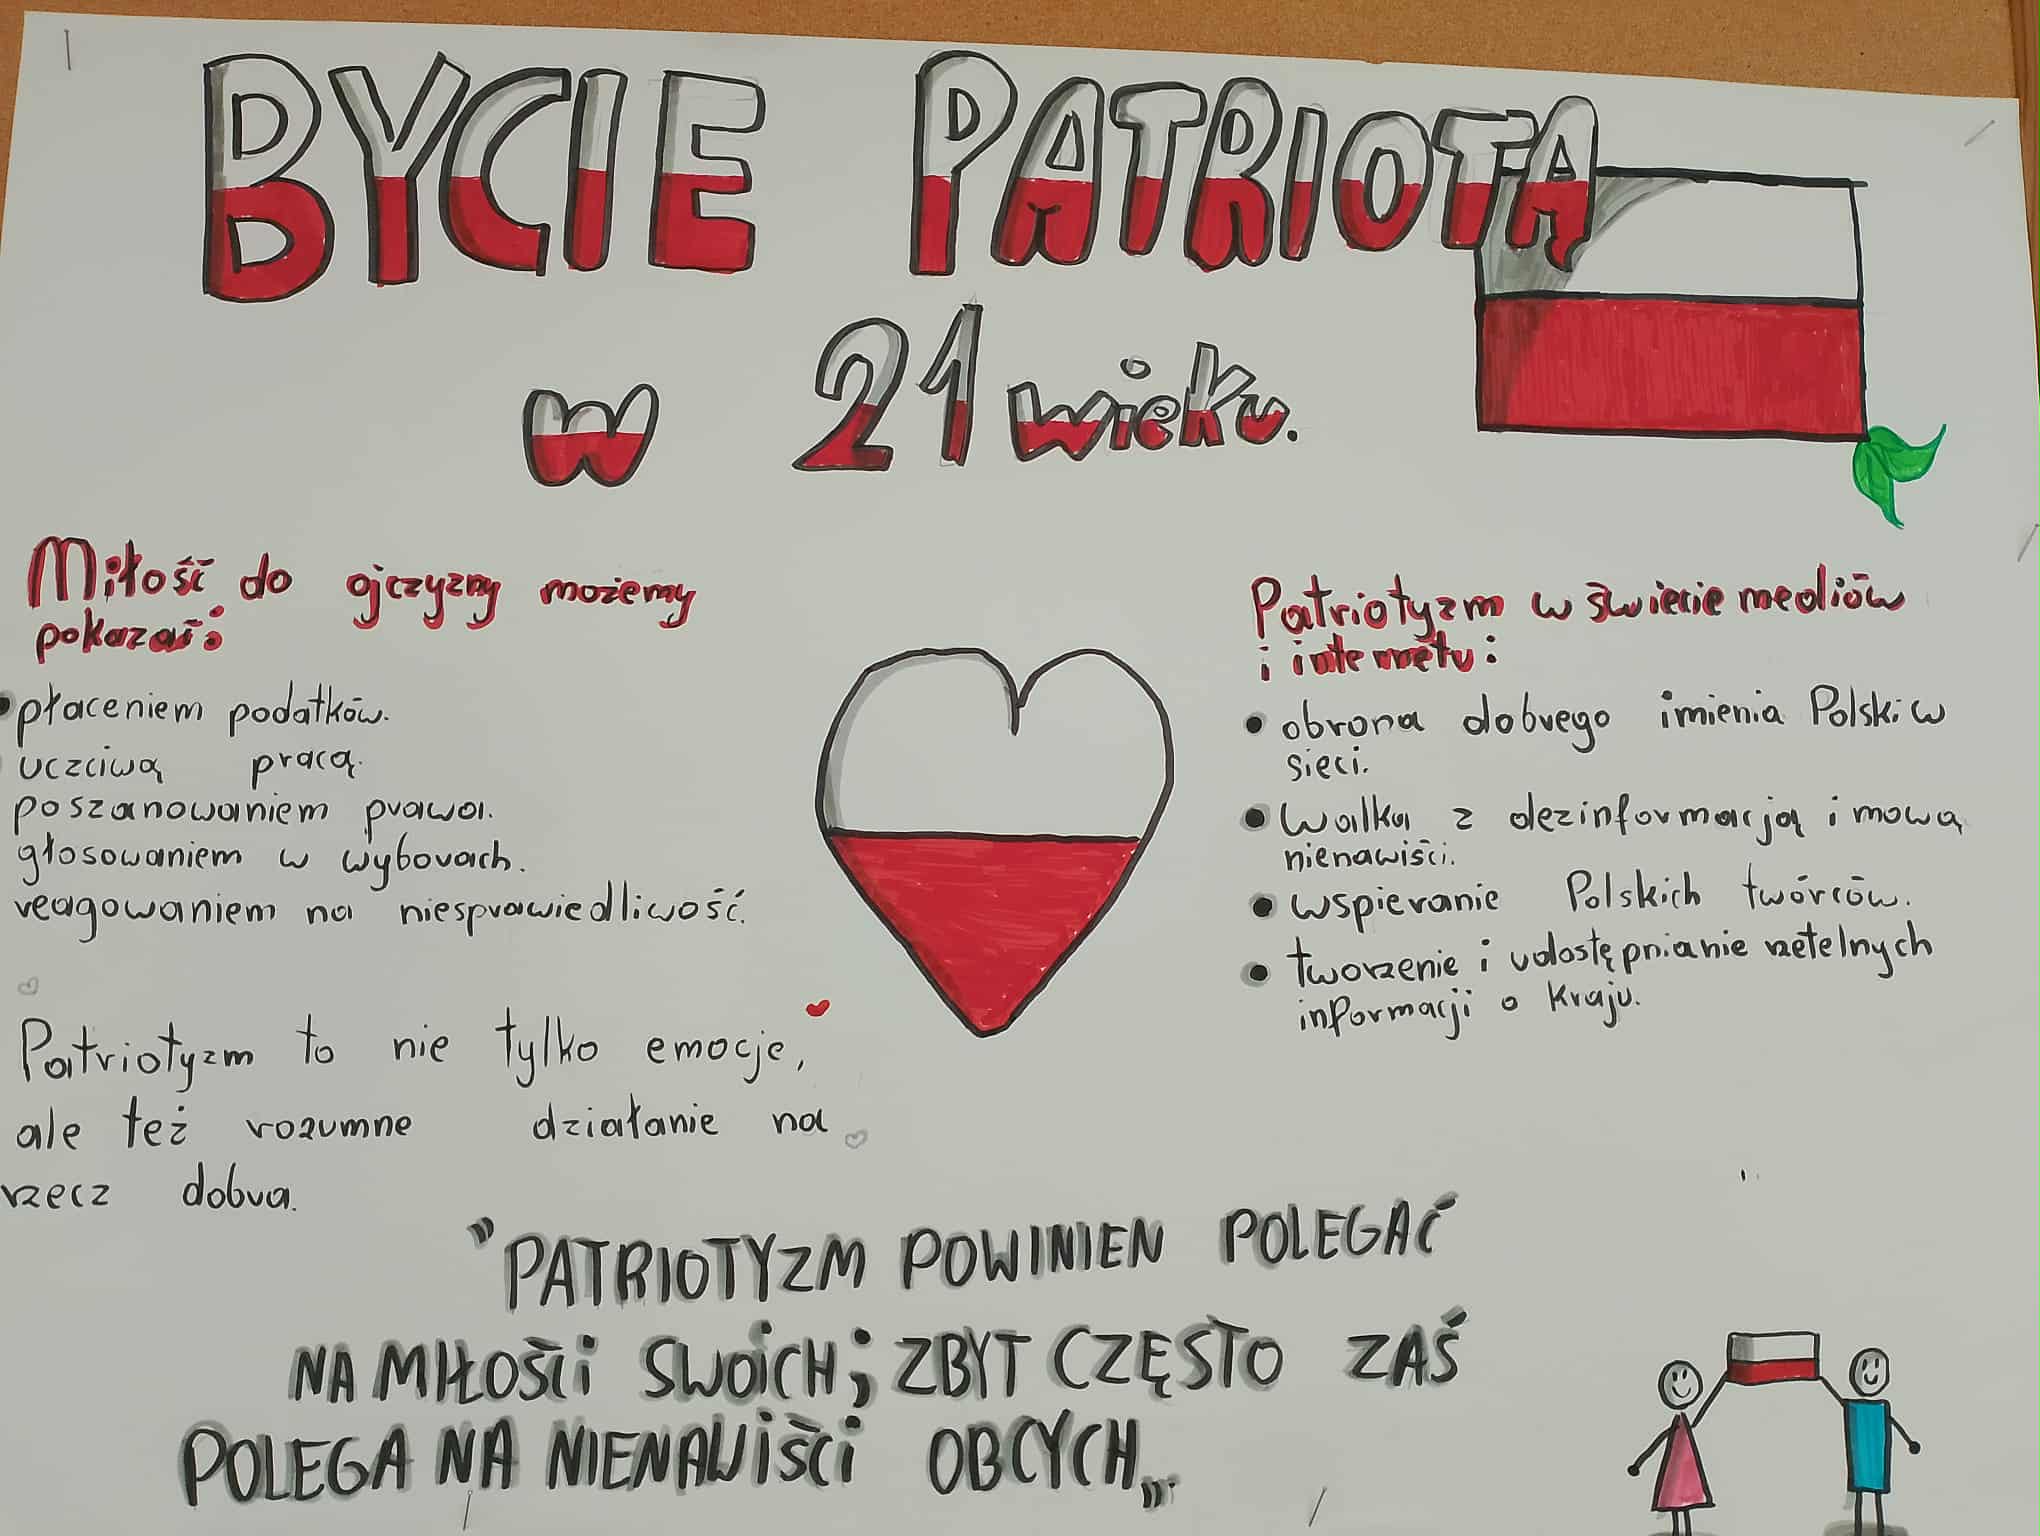 BYCIE PATRIOTĄ
w 21 wieku.
Miłość do ojczyzny możemy
pokazać:
• płaceniem podatków.
uczciwą pracą.
poszanowaniem prawa.
głosowaniem w wyborach.
reagowaniem na niesprawiedliwość.
Patriotyzm to nie tylko emocje,
ale też rozumne działanie na
rzecz dobra.
Patriotyzm w świecie mediów
i internetu:
• obrona dobrego imienia Polski w
sieci.
• Walka z dezinformacją i mową
nienawiści.
• wspieranie Polskich twórców.
• tworzenie i udostępnianie rzetelnych
informacji o kraju.
"PATRIOTYZM POWINIEN POLEGAĆ
NA MIŁOŚCI SWOICH; ZBYT CZĘSTO ZAŚ
POLEGA NA NIENAWIŚCI OBCYCH„.